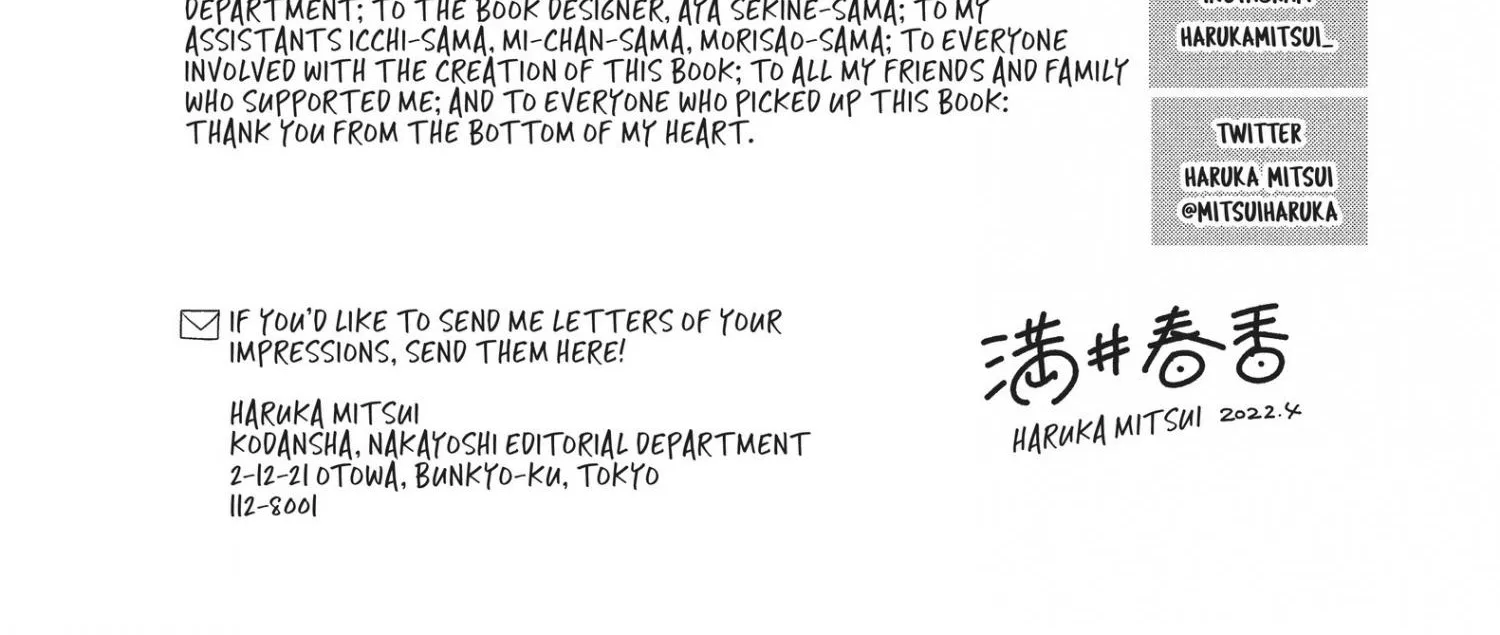 DEPARTMENT; TO THE BOOK DESIGNER, AYA SEKINE-SAMA; TO MY
ASSISTANTS ICCHI-SAMA, MI-CHAN-SAMA, MORISAO-SAMA; TO EVERYONE
INVOLVED WITH THE CREATION OF THIS BOOK; TO ALL MY FRIENDS AND FAMILY
WHO SUPPORTED ME; AND TO EVERYONE WHO PICKED UP THIS BOOK:
THANK YOU FROM THE BOTTOM OF MY HEART.
INSTAGRAM
HARUKAMITSUI_
TWITTER
HARUKA MITSUI
@MITSUIHARUKA
IF YOU'D LIKE TO SEND ME LETTERS OF YOUR
IMPRESSIONS, SEND THEM HERE!
HARUKA MITSUI
KODANSHA, NAKAYOSHI EDITORIAL DEPARTMENT
2-12-21 OTOWA, BUNKYO-KU, TOKYO
112-8001
満井春香
HARUKA MITSUI 2022.4